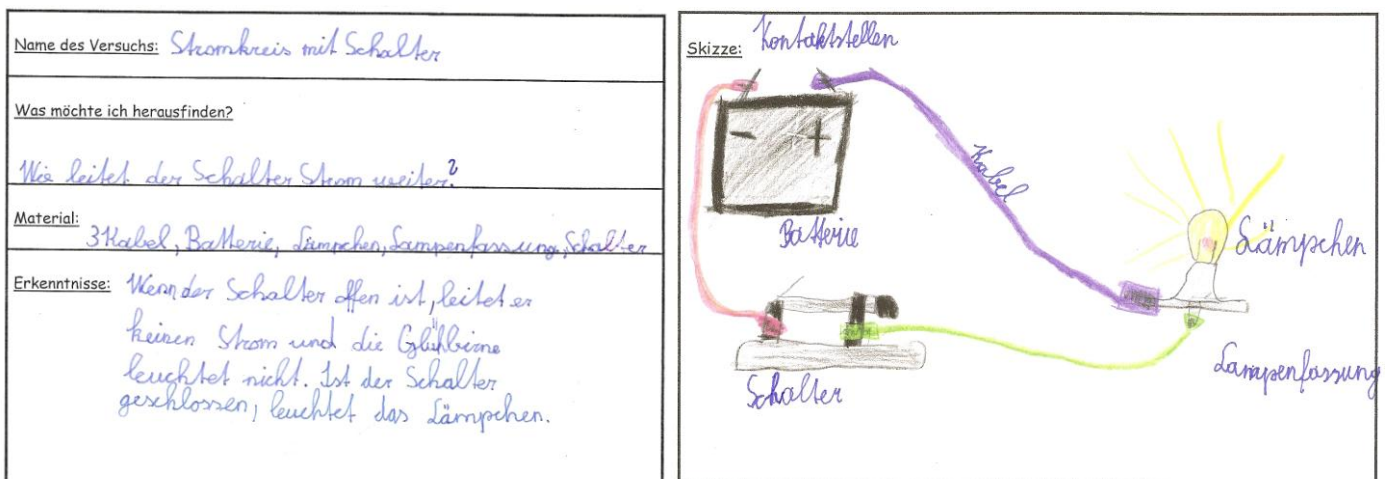 Name des Versuchs: Stromkreis mit Schalter
Was möchte ich herausfinden?
Wie leitet der Schalter Strom weiter?
Material:
3 Kabel, Batterie, Lämpchen, Lampenfassung, Schalter
Erkenntnisse: Wenn der Schalter offen ist, leitet er
keinen Strom und die Glühbirne
leuchtet nicht. Ist der Schalter
geschlossen, leuchtet das Lämpchen.
Skizze: Kontaktstellen
- +
Kabel
Batterie
Lämpchen
Lampenfassung
Schalter